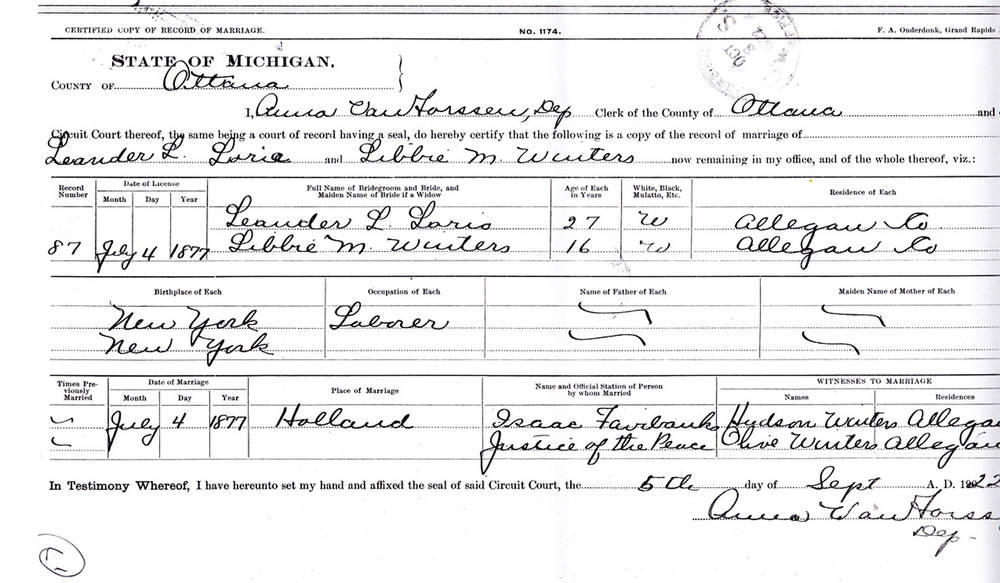 CERTIFIED COPY OF RECORD OF MARRIAGE. NO. 1174. F. A. Onderdonk, Grand Rapids
STATE OF MICHIGAN,
COUNTY OF Ottawa
I, Anna Van Horssen, Dep Clerk of the County of Ottawa and
Circuit Court thereof, the same being a court of record having a seal, do hereby certify that the following is a copy of the record of marriage of
Leander L. Loric and Libbie M. Winters now remaining in my office, and of the whole thereof, viz.:
Record Number Date of License Full Name of Bridegroom and Bride, and Maiden Name of Bride if a Widow Age of Each in Years White, Black, Mulatto, Etc. Residence of Each
Month Day Year
Leander L. Loris 27 W Allegan Co.
87 July 4 1877 Libbie M. Winters 16 W Allegan Co
Birthplace of Each Occupation of Each Name of Father of Each Maiden Name of Mother of Each
New York Laborer
New York
Times Previously Married Date of Marriage Place of Marriage Name and Official Station of Person by whom Married WITNESSES TO MARRIAGE
Month Day Year Names Residences
July 4 1877 Holland Isaac Fairbanks Hudson Winters Allegan
Justice of the Peace Olive Winters Allegan
In Testimony Whereof, I have hereunto set my hand and affixed the seal of said Circuit Court, the 5th day of Sept A. D. 1922
Anna Van Horss
Dep-